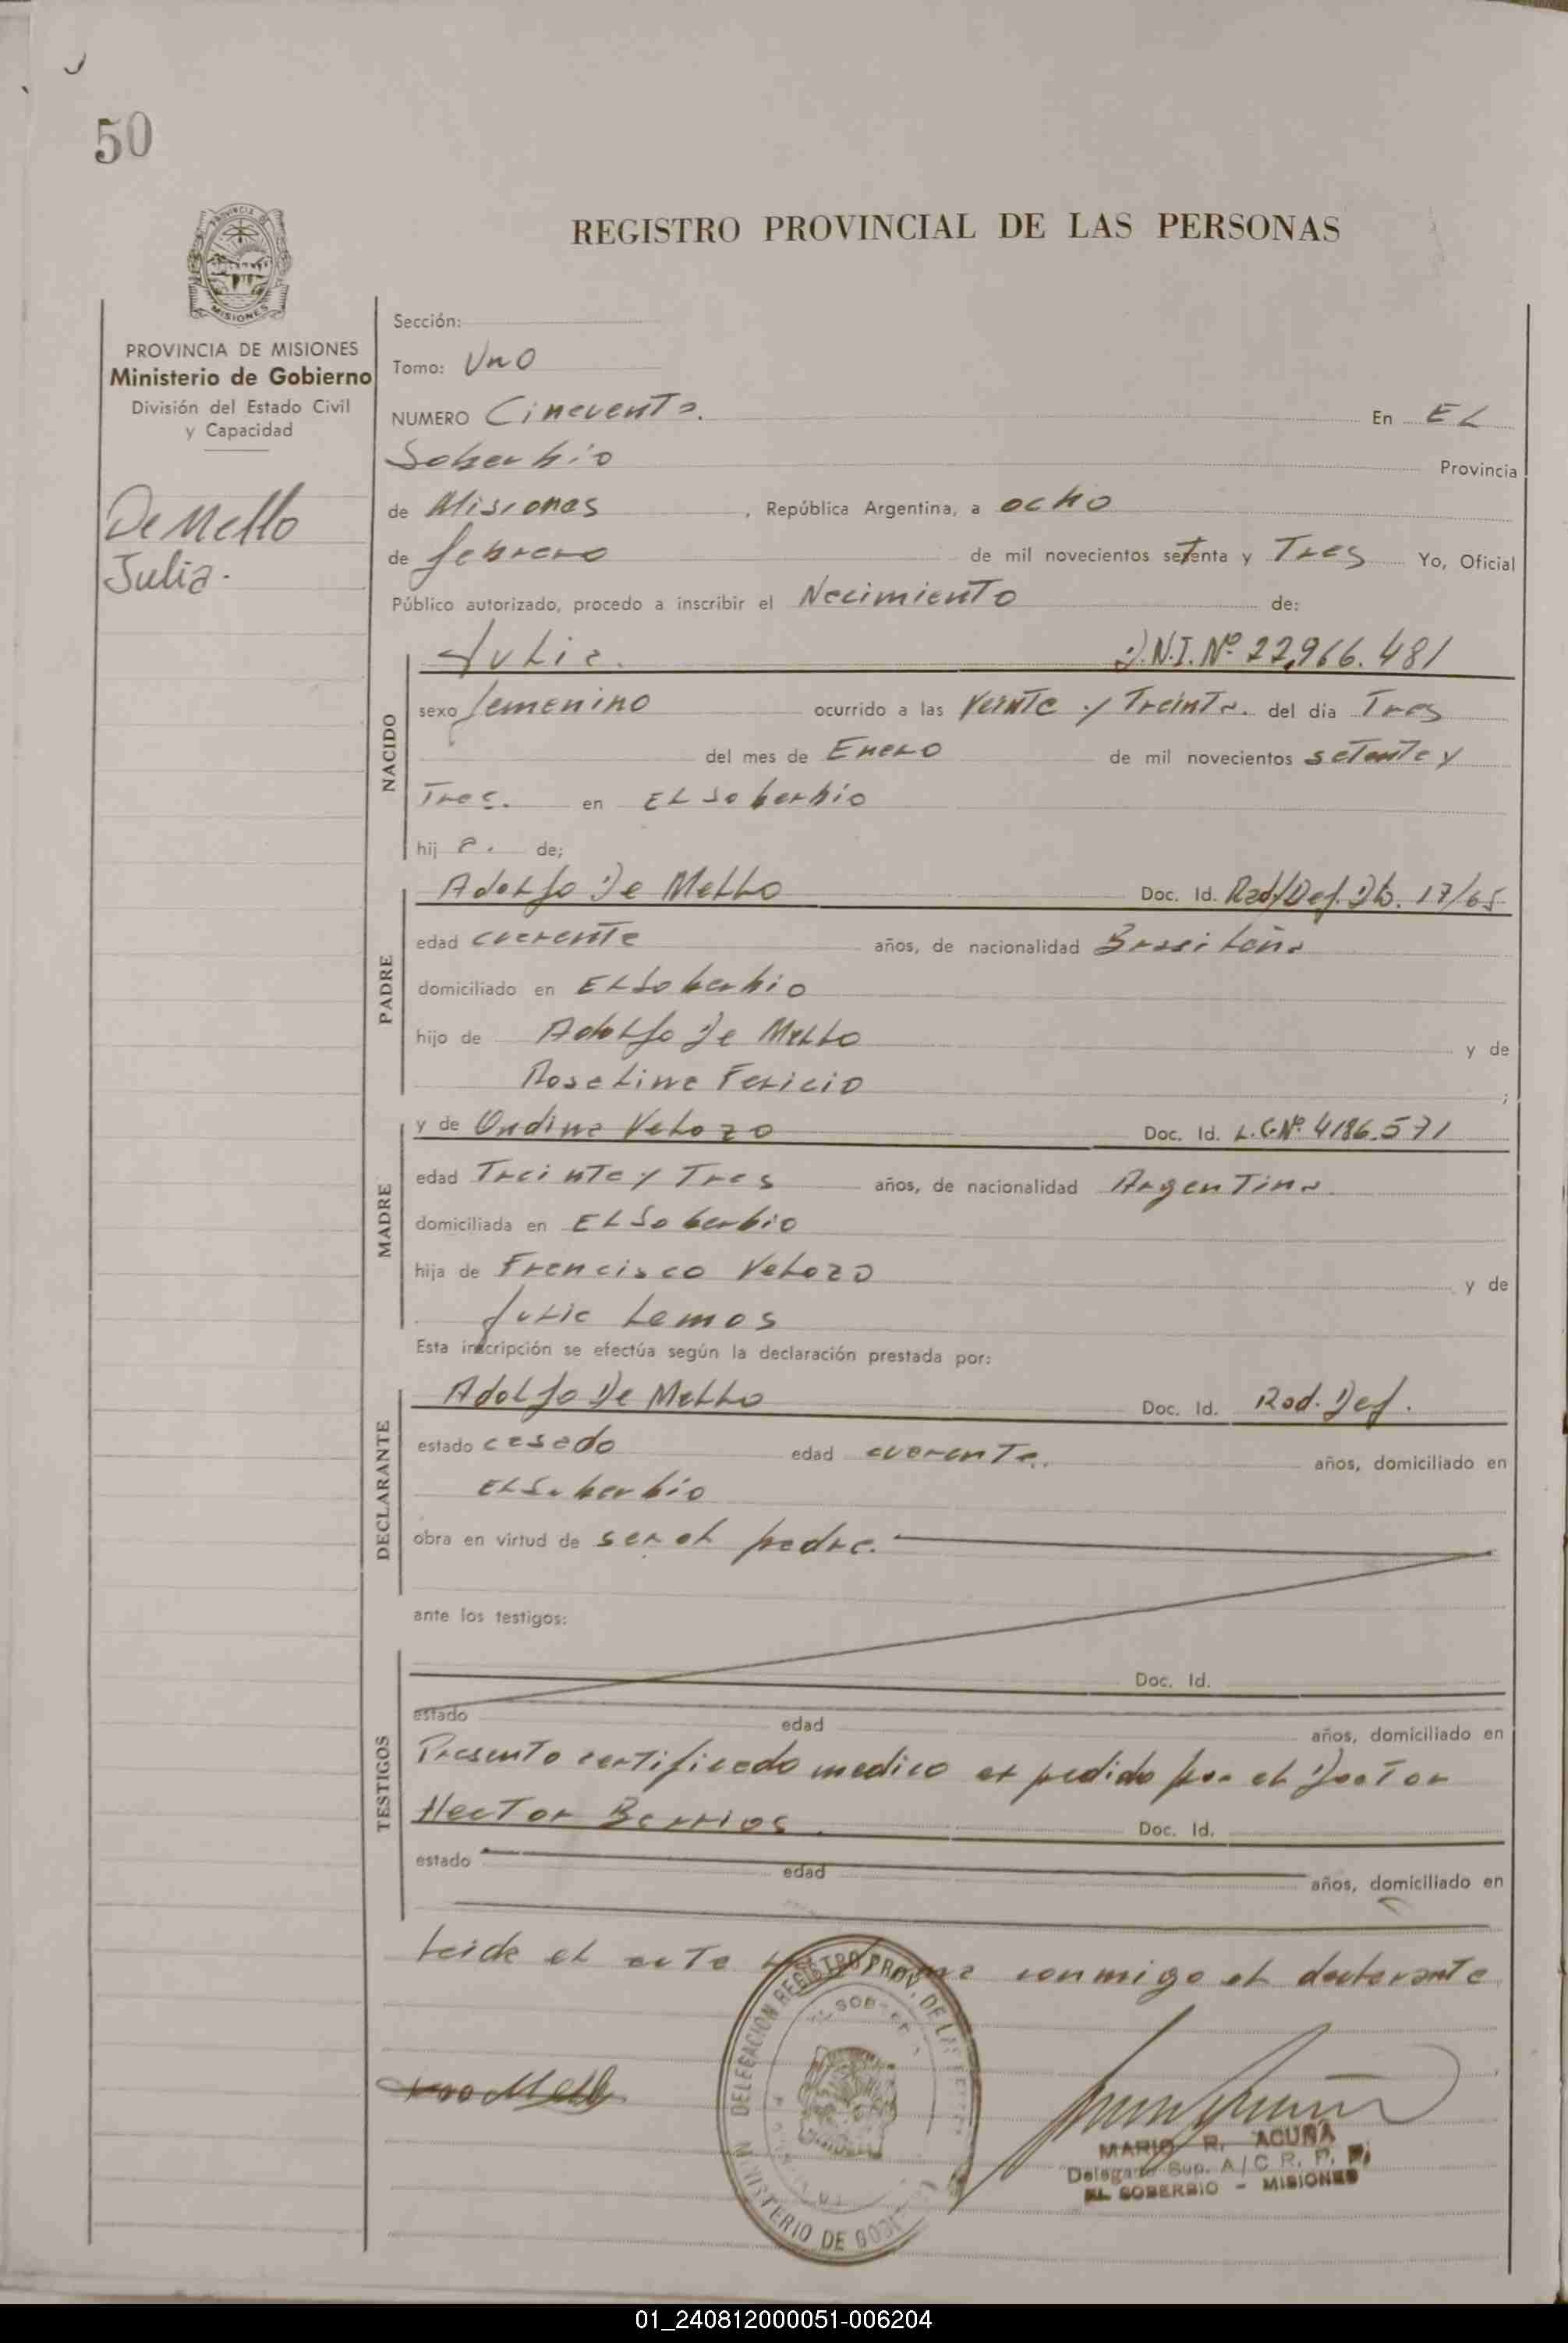 50
REGISTRO PROVINCIAL DE LAS PERSONAS
PROVINCIA DE
MISIONES
PROVINCIA DE MISIONES
Ministerio de Gobierno
División del Estado Civil
y Capacidad
De Mello
Julia.
Sección:
Tomo: Uno
NUMERO Cincuenta. En EL
Soberbio Provincia
de Misiones, República Argentina, a ocho
de febrero de mil novecientos setenta y Tres Yo, Oficial
Público autorizado, procedo a inscribir el Nacimiento de:
NACIDO
Julia. D.N.I. Nº 22,966.481
sexo femenino ocurrido a las Veinte y Treinta. del día Tres
del mes de Enero de mil novecientos setenta y
Tres. en EL Soberbio
hij a. de;
PADRE
Adolfo De Mello Doc. Id. Rad/Def. 17/65
edad cuarenta años, de nacionalidad Brasileña
domiciliado en EL Soberbio
hijo de Adolfo De Mello y de
Roselina Felicio ;
MADRE
y de Ondina Velozo Doc. Id. L.C.Nº 4186.571
edad Treinta y Tres años, de nacionalidad Argentina
domiciliada en EL Soberbio
hija de Francisco Velozo y de
Julia Lemos
Esta inscripción se efectúa según la declaración prestada por:
DECLARANTE
Adolfo De Mello Doc. Id. Rad. Def.
estado casado edad cuarenta. años, domiciliado en
EL Soberbio
obra en virtud de ser el padre.
ante los testigos:
TESTIGOS
Doc. Id.
estado edad años, domiciliado en
Presento certificado medico expedido por el Doctor
Hector Barrios. Doc. Id.
estado edad años, domiciliado en
Leida el acta firma conmigo el declarante
DELEGACION REGISTRO PROV. DE LAS
MINISTERIO DE GOBIERNO
MARIO R. ACUÑA
Delegado Sup. A/C R. P. P.
EL SOBERBIO - MISIONES
01_240812000051-006204